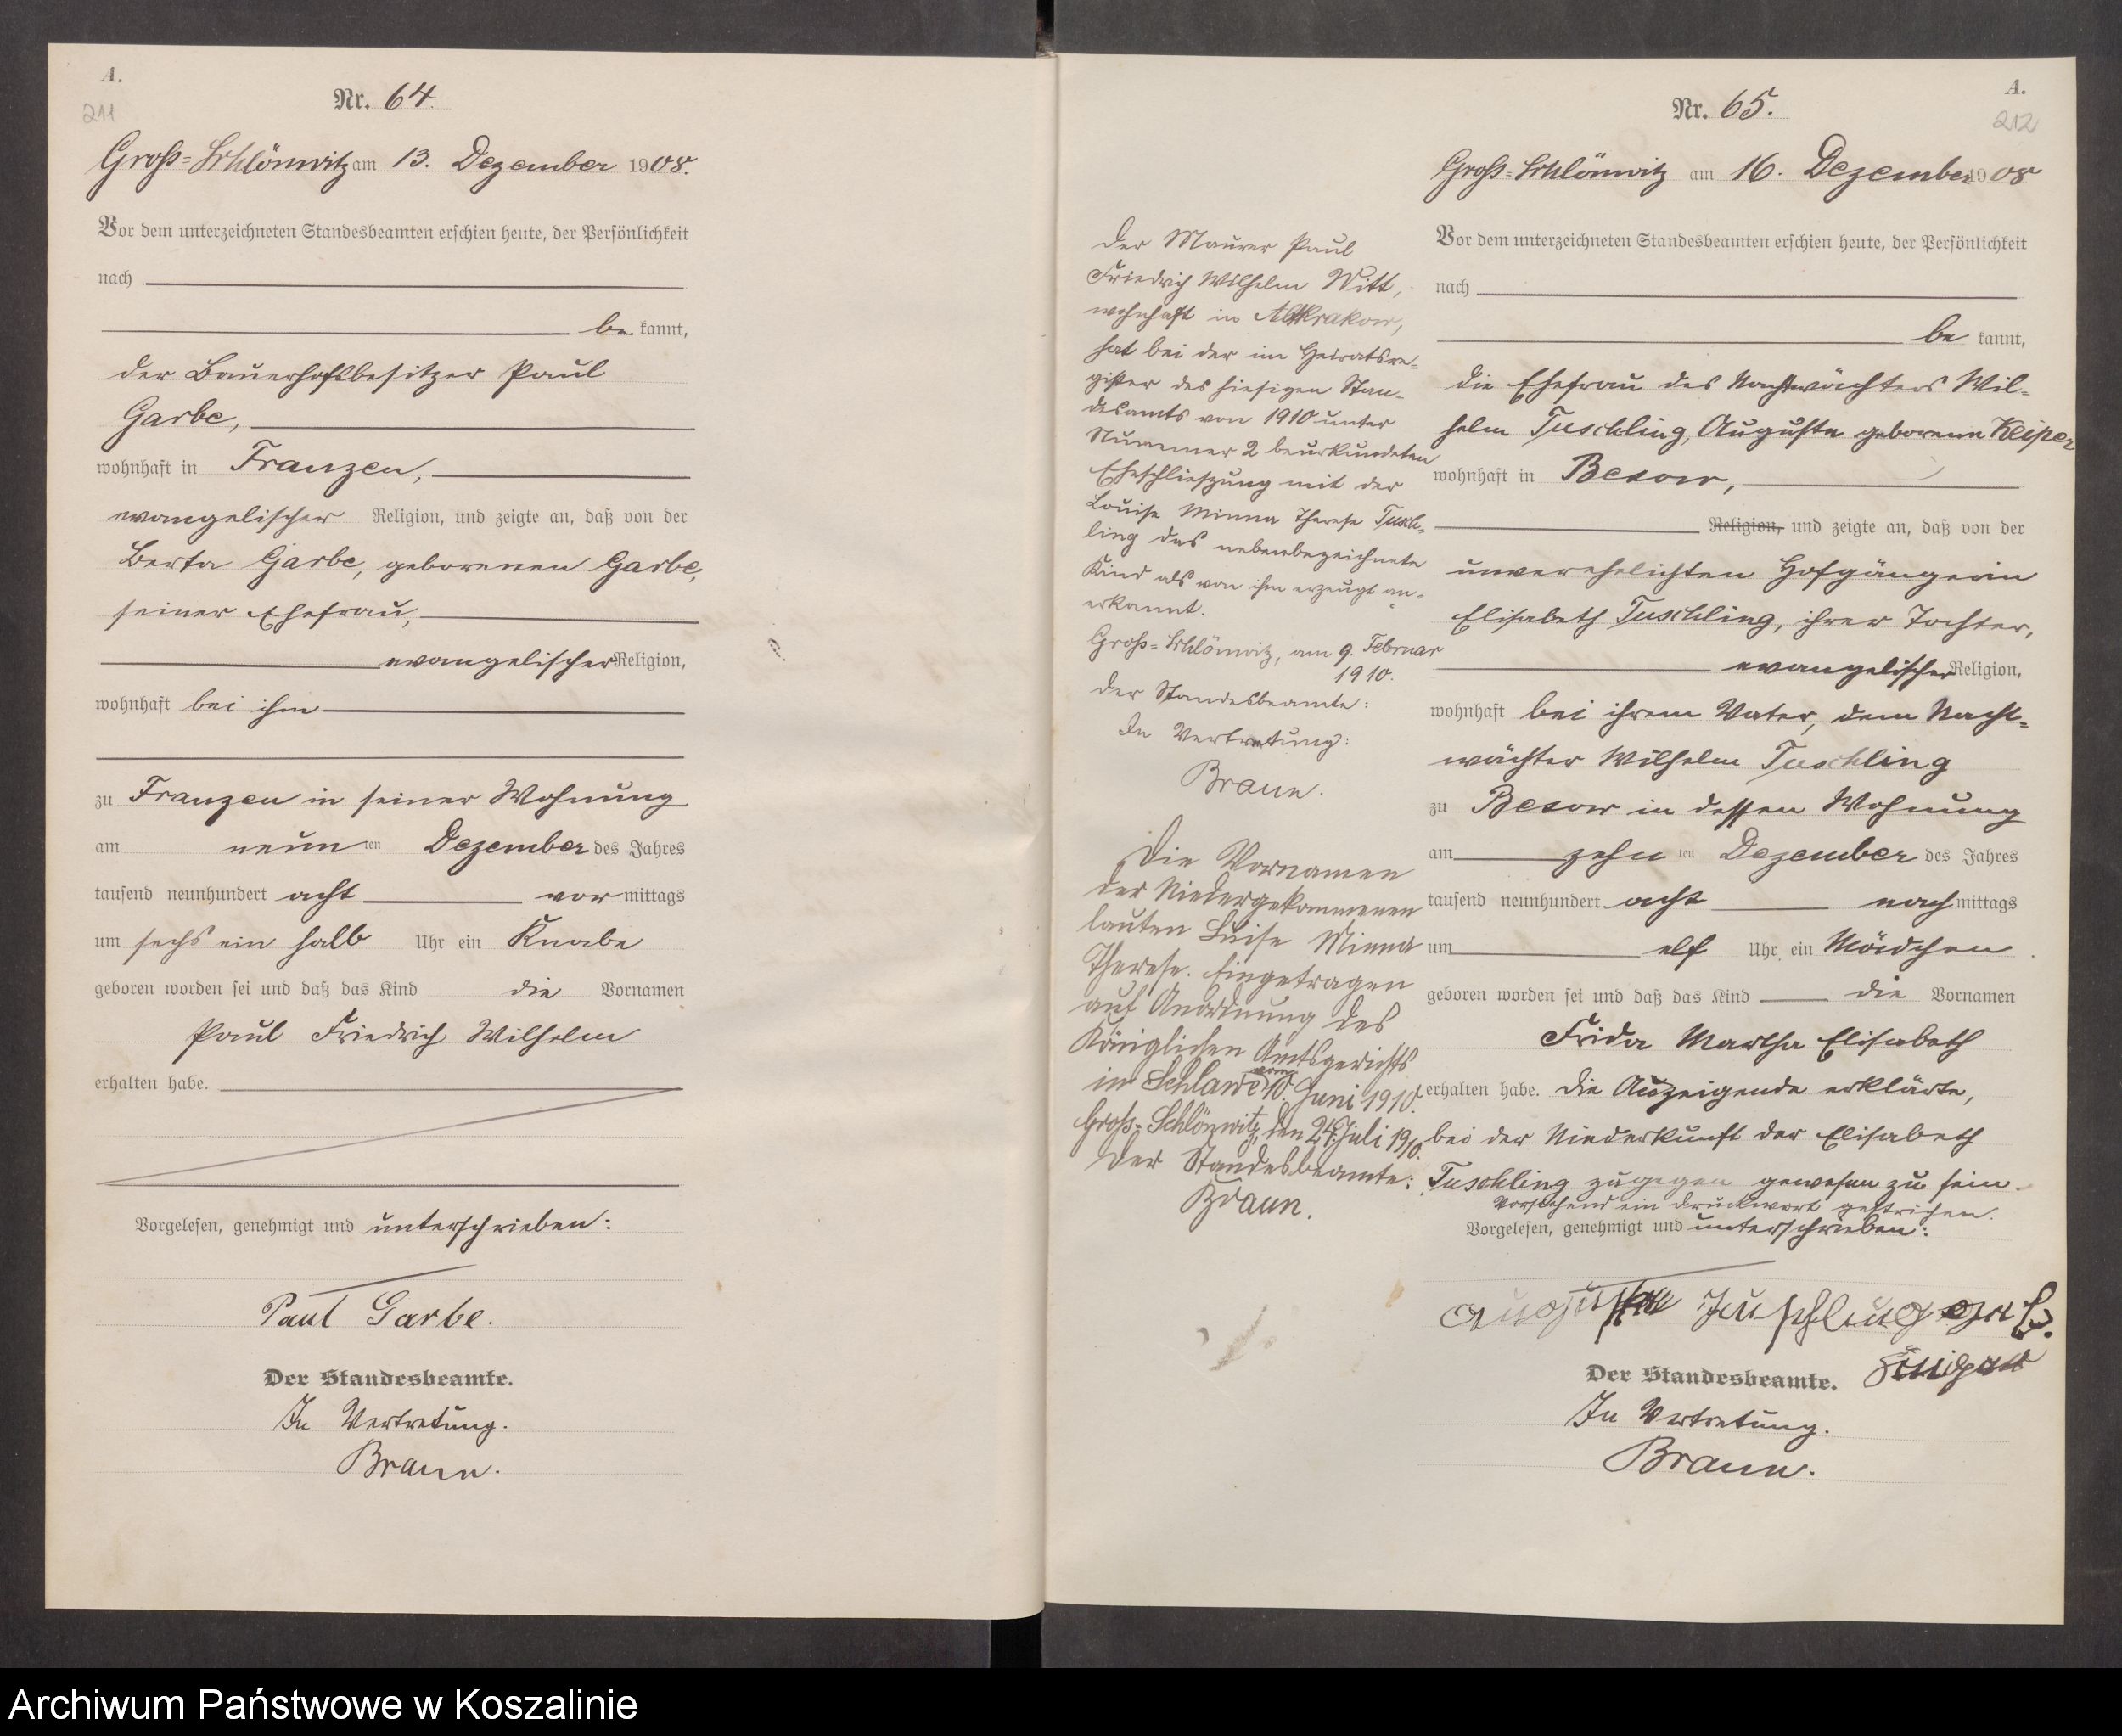 A.
211
Nr. 64.
Groß=Schlönwitz am 13. Dezember 1908.
Vor dem unterzeichneten Standesbeamten erschien heute, der Persönlichkeit
nach
be kannt,
der Bauerhofsbesitzer Paul
Garbe,
wohnhaft in Franzen,
evangelischer Religion, und zeigte an, daß von der
Berta Garbe, geborenen Garbe,
seiner Ehefrau,
evangelischer Religion,
wohnhaft bei ihm
zu Franzen in seiner Wohnung
am neun ten Dezember des Jahres
tausend neunhundert acht vor mittags
um sechs ein halb Uhr ein Knabe
geboren worden sei und daß das Kind die Vornamen
Paul Friedrich Wilhelm
erhalten habe.
Vorgelesen, genehmigt und unterschrieben:
Paul Garbe.
Der Standesbeamte.
In Vertretung.
Braun.
Der Maurer Paul
Friedrich Wilhelm Witt,
wohnhaft in Altkrakow,
hat bei der im Heiratsre=
gister des hiesigen Stan=
desamts von 1910 unter
Nummer 2 beurkundeten
Eheschlieszung mit der
Louise Minna Therese Tusch=
ling das nebenbezeichnete
Kind als von ihm erzeugt an=
erkannt.
Groß=Schlönwitz, am 9. Februar
1910.
Der Standesbeamte:
In Vertretung:
Braun.
Die Vornamen
der Niedergekommenen
lauten Luise Minna
Therese. Eingetragen
auf Anordnung des
Königlichen Amtsgerichts
in Schlawe vom 10. Juni 1910.
Groß=Schlönwitz, den 24. Juli 1910.
Der Standesbeamte:
Braun.
A.
212
Nr. 65.
Groß=Schlönwitz am 16. Dezember 1908
Vor dem unterzeichneten Standesbeamten erschien heute, der Persönlichkeit
nach
be kannt,
die Ehefrau des Nachtwächters Wil=
helm Tuschling, Auguste geborene
wohnhaft in Besow,
Religion, und zeigte an, daß von der
unverehelichten Hofgängerin
Elisabeth Tuschling, ihrer Tochter,
evangelischer Religion,
wohnhaft bei ihrem Vater, dem Nacht=
wächter Wilhelm Tuschling
zu Besow in dessen Wohnung
am zehn ten Dezember des Jahres
tausend neunhundert acht nach mittags
um elf Uhr ein Mädchen
geboren worden sei und daß das Kind die Vornamen
Frida Martha Elisabeth
erhalten habe. Die Anzeigende erklärte,
bei der Niederkunft der Elisabeth
Tuschling zugegen gewesen zu sein.
Vorstehend ein Druckwort gestrichen.
Vorgelesen, genehmigt und unterschrieben:
Auguste Tuschling geb.
Der Standesbeamte.
In Vertretung.
Braun.
Archiwum Państwowe w Koszalinie